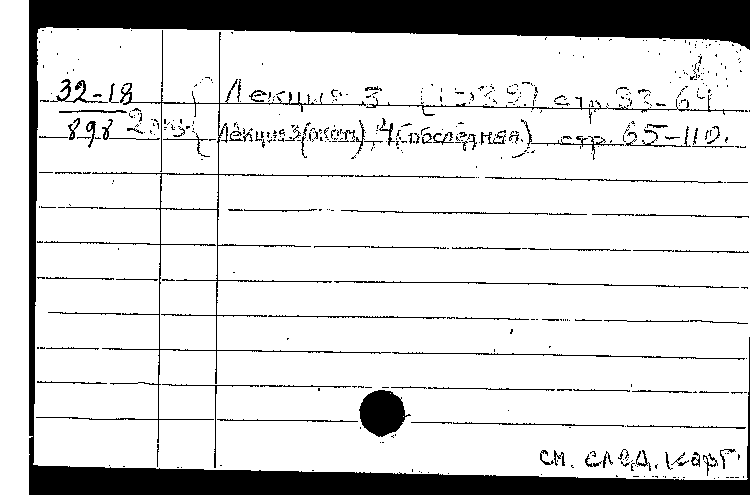 32-18 Лекция 3. (1939), стр. 33-64.
898 2 экз. Лекция 3 (оконч.), 4 (последняя), стр. 65-110.
см. след. карт.